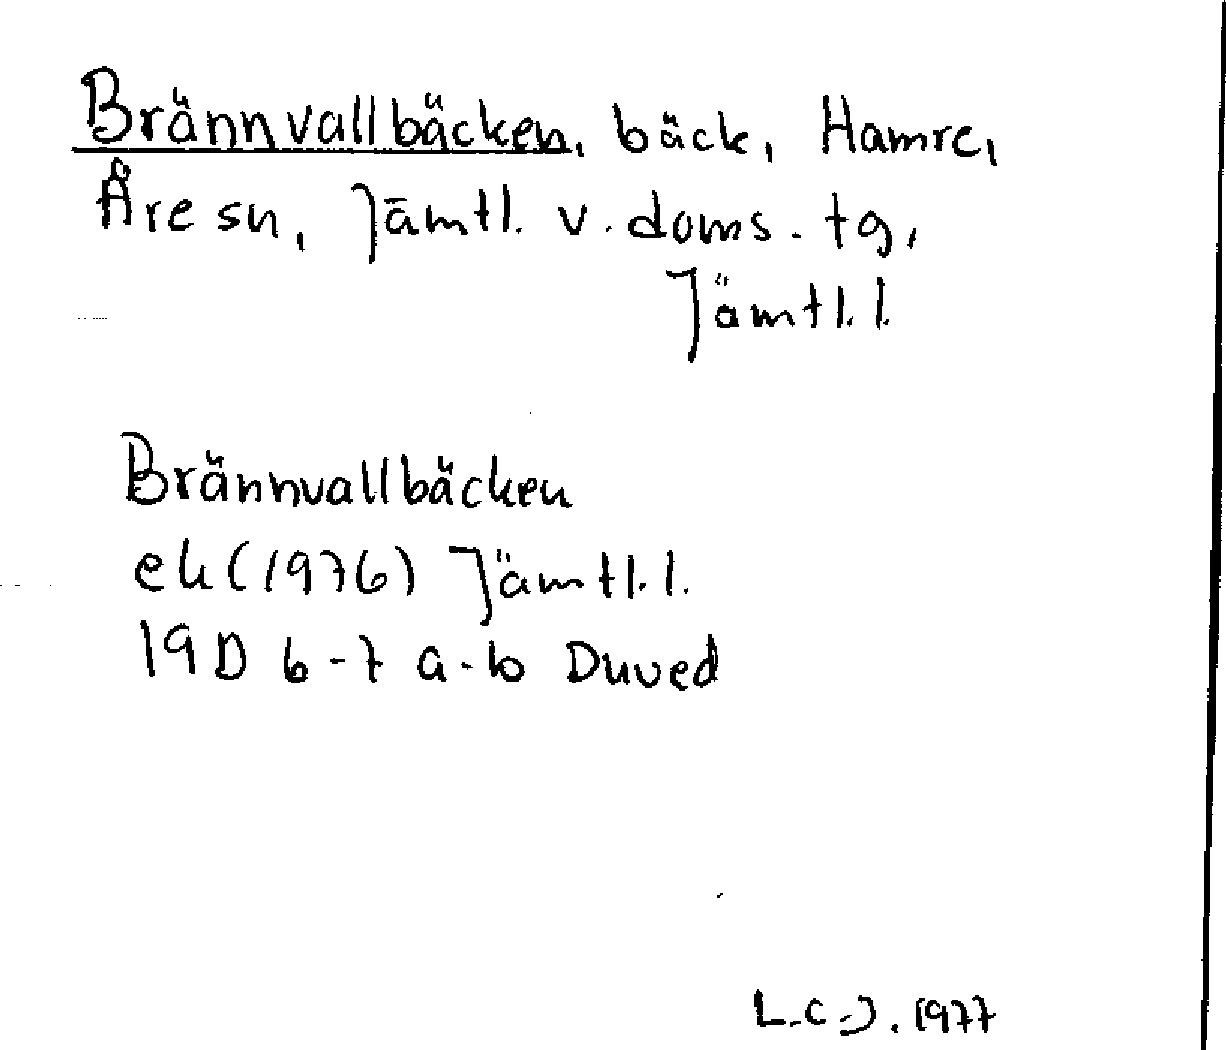 Brännvallbäcken, bäck, Hamre,
Åre sn, Jämtl. v. doms. tg,
Jämtl. l.
Brännvallbäcken
ek (1976) Jämtl. l.
19D 6-7 a-b Duved
L.C-J. 1977